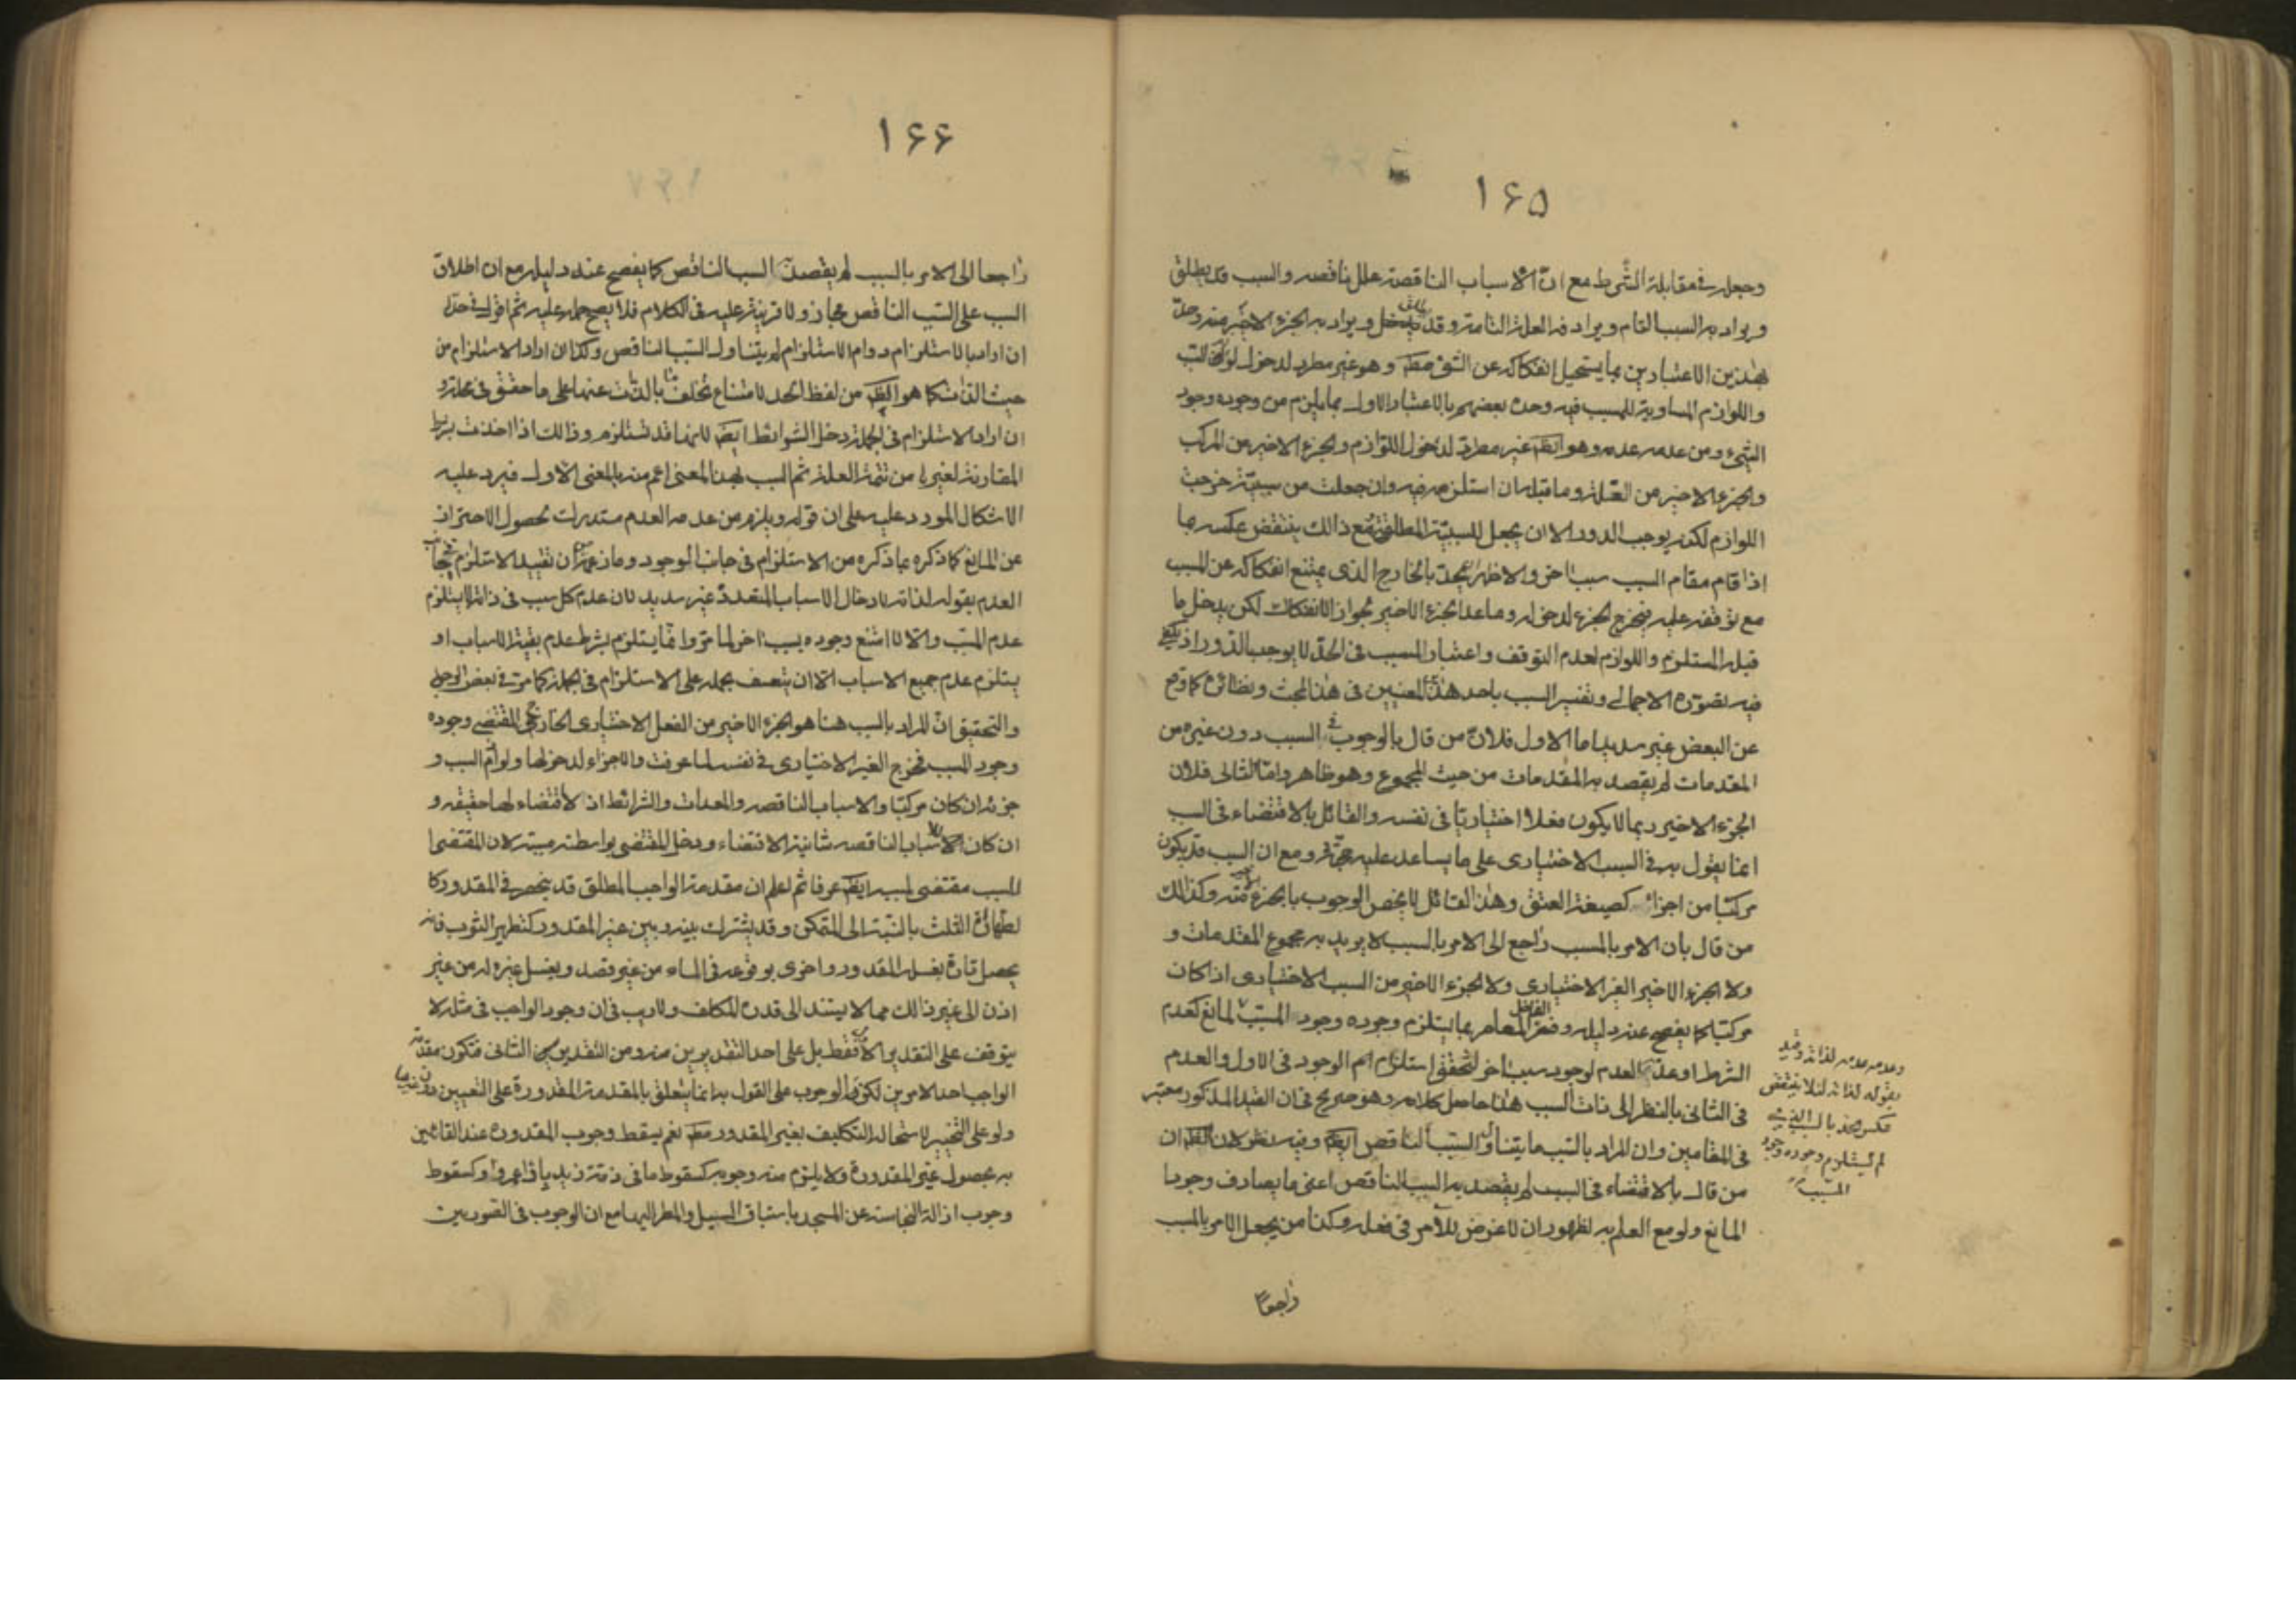 ١۶۵
وجعله في مقابلة الشرط مع ان الاسباب الناقصة علل ناقصه والسبب قد يطلق
ويراد به السبب التام ويرادفه العلة التامة وقد يطلق ويراد به الجزء الاخير منه وحد
بهذين الاعتبارين بما يستحيل انفكاكه عن الشئ مط وهو غير مطرد لدخول لوازم السبب
واللوازم المساوية للمسبب فيه وحده بعضهم بالاعتبار الاول بما يلزم من وجوده وجود
الشئ ومن عدمه عدمه وهو ايضا غير مطرد لدخول اللوازم والجزء الاخير من المركب
والجزء الاخير من العلة وما قبله ان استلزمه فيه وان جعلت من سببية خرجت
اللوازم لكنه يوجب الدور الا ان يجعل للسببية المطلقة ومع ذالك ينتقض عكسه بما
اذا قام مقام السبب سبب اخر والاظهر ان يحد بالخارج الذى يمتنع انفكاكه عن المسبب
مع توقفه عليه فيخرج الجزء لدخوله وما عدا الجزء الاخير لجواز الانفكاك لكن يدخل ما
قبله المستلزم واللوازم لعدم التوقف واعتبار المسبب في الحد لا يوجب الدور اذ يكفى
فيه تصوره الاجمالى وتفسير السبب باحد هذين المعنيين في هذا المبحث ونظائره كما وقع
عن البعض غير سديد اما الاول فلان من قال بالوجوب في السبب دون غيره من
المقدمات لم يقصد به المقدمات من حيث المجموع وهو ظاهر واما الثانى فلان
الجزء الاخير ربما لا يكون فعلا اختياريا في نفسه والقائل بالاقتضاء في السبب
انما يقول به في السبب الاختيارى على ما يساعد عليه حجته ومع ان السبب قد يكون
مركبا من اجزاء كصيغة العتق وهذا القائل لا يخص الوجوب بالجزء الاخير منه وكذالك
من قال بان الامر بالمسبب راجع الى الامر بالسبب لا يريد به مجموع المقدمات و
ولا الجزء الاخير الغير الاختيارى ولا الجزء الاخير من السبب الاختيارى اذا كان
مركبا كما يفصح عنه دليله وفسر الفاضل المعاصر بما يستلزم وجوده وجود المسبب لمانع كعدم
الشرط او عدمه العدم لوجود سبب اخر لتحقق استلزام الوجود في الاول والعدم
في الثانى بالنظر الى ذات السبب هذا حاصل كلامه وهو صريح في ان القيد المذكور معتبر
في المقامين وان المراد بالسبب ما يتناول السبب الناقص ايضا وفيه نظر لان الظ ان
من قال بالاقتضاء في السبب لم يقصد به السبب الناقص اعنى ما يصادف وجود
المانع ولو مع العلم به لظهور ان لا غرض للآمر في فعله وكذا من يجعل الامر بالمسبب
راجعا
وعدمه عدمه لذاته وقيد
بقوله لذاته لئلا ينتقض
عكس الحد بالسبب الذى
لم يستلزم وجوده وجود
المسبب
١۶۶
راجعا الى الامر بالسبب لم يقصد به السبب الناقص كما يفصح عنه دليله مع ان اطلاق
السبب على السبب الناقص مجاز ولا قرينة عليه في الكلام فلا يصح حمله عليه ثم اقول في حده
ان اراد بالاستلزام دوام الاستلزام لم يتناول السبب الناقص وكذا ان اراد الاستلزام من
حيث الذات كما هو الظ من لفظ الحد لامتناع تخلف ما بالذات عنها على ما حقق في محله و
ان اراد الاستلزام في الجملة دخل الشرائط ايضا لانها قد تستلزم وذالك اذا اخذت بشرط
المقارنة لغيرها من تتمة العلة ثم السبب بهذا المعنى اعم منه بالمعنى الاول فيرد عليه
الاشكال المورد عليه على ان قوله ويلزم من عدمه العدم مستدرك لحصول الاحتراز
عن المانع كما ذكره بما ذكره من الاستلزام في جانب الوجود وما زعمه من ان تقييد الاستلزام في جانب
العدم بقوله لذاته لادخال الاسباب المتعددة غير سديد لان عدم كل سبب في ذاته لا يستلزم
عدم المسبب والا لامتنع وجوده بسبب اخر لما مر وانما يستلزم بشرط عدم بقية الاسباب او
يستلزم عدم جميع الاسباب الا ان يتعسف بحمله على الاستلزام في الجملة كما مر في بعض الوجوه
والتحقيق ان المراد بالسبب هنا هو الجزء الاخير من الفعل الاختيارى الخارجى المقتضى وجوده
وجود المسبب فخرج الغير الاختيارى في نفسه لما عرفت والاجزاء لدخولها ولوازم السبب و
جزئه ان كان مركبا والاسباب الناقصه والمعدات والشرائط اذ لا اقتضاء لها حقيقة و
ان كان للاسباب الناقصه شانية الاقتضاء ودخل المقتضى بواسطة مسببه لان المقتضى
للسبب مقتضى لمسببه ايضا عرفا ثم اعلم ان مقدمة الواجب المطلق قد ينحصر في المقدور كا
لطهارة الثلث بالنسبة الى المتمكن وقد يشترك بينه وبين غير المقدور كتطهير الثوب فانه
يحصل تارة بغسله المقدور واخرى بوقوعه في الماء من غير قصد وبغسل غيره له من غير
اذن الى غير ذالك مما لا يستند الى قدرة المكلف ولا ريب في ان وجود الواجب في مثله لا
يتوقف على التقدير الاول فقط بل على احد التقديرين منه ومن التقديرين الثانى فتكون مقدمة
الواجب احد الامرين لكن الوجوب على القول به انما يتعلق بالمقدمة المقدورة على التعيين دون غيرها
ولو على التخيير لاستحالة التكليف بغير المقدور مط نعم يسقط وجوب المقدورة عند القائلين
به بحصول غير المقدورة ولا يلزم منه وجوبه كسقوط ما في ذمة زيد باداء عمرو او كسقوط
وجوب ازالة النجاسة عن المسجد باستباق السيل والمطر اليها مع ان الوجوب في الصورتين